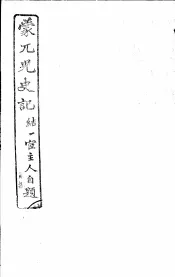 蒙兀兒史記
結一宧主人自題